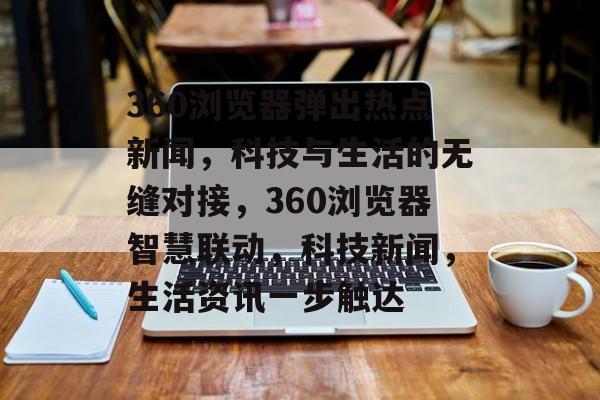 360浏览器弹出热点
新闻，科技与生活的无
缝对接，360浏览器
智慧联动，科技新闻，
生活资讯一步触达